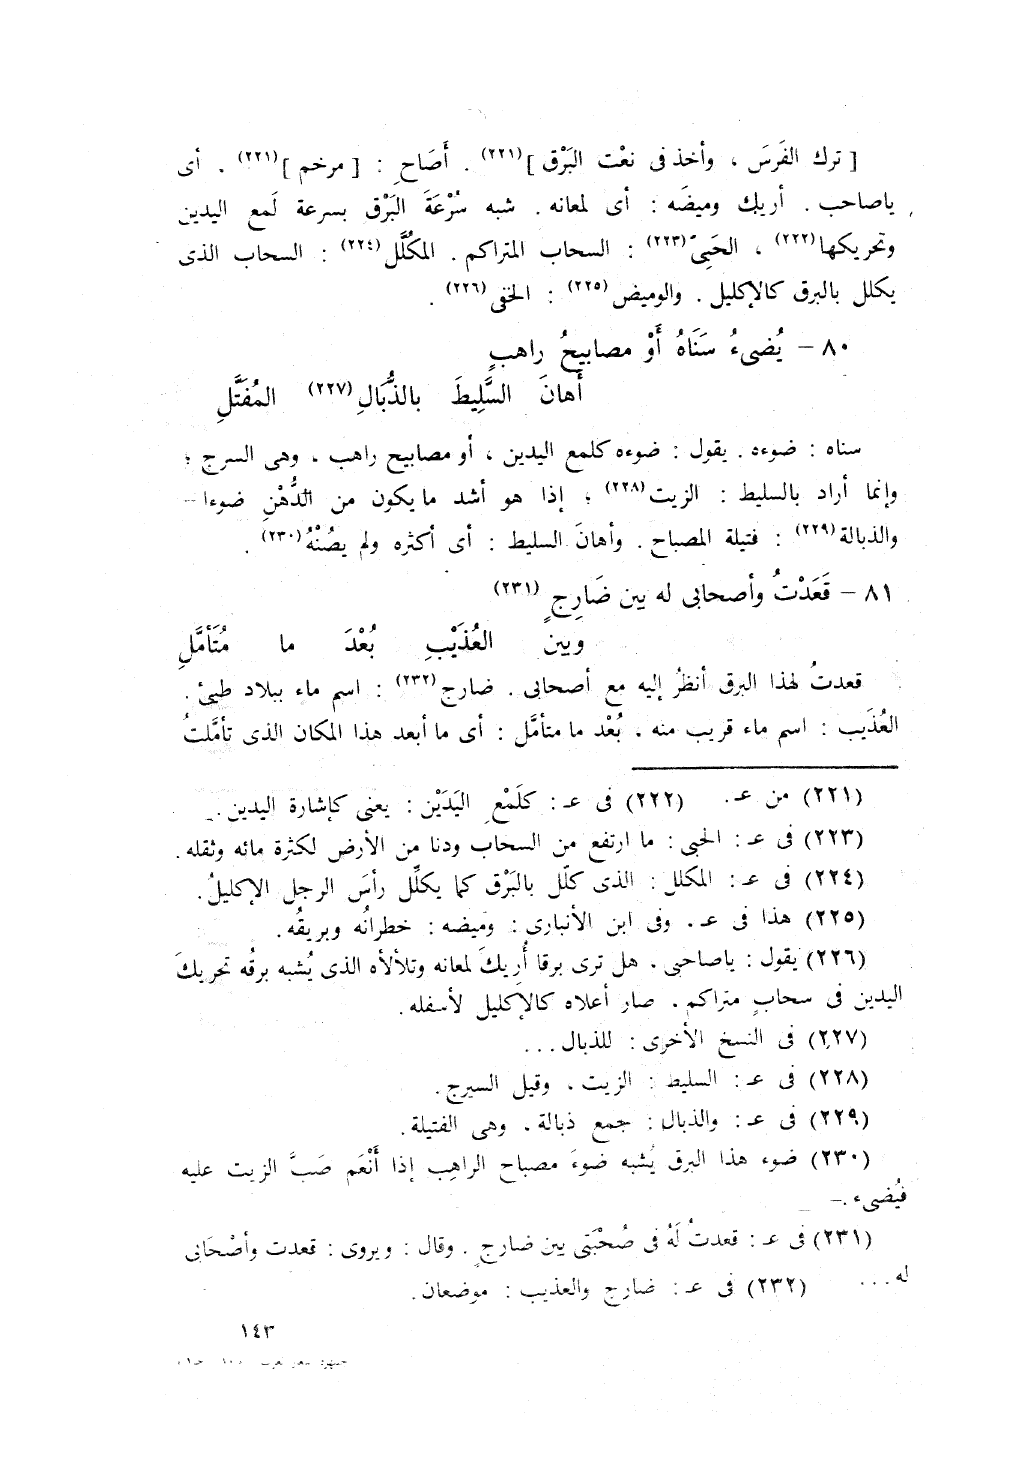 [ ترك الفَرسَ ، وأخذ فى نعْت البَرْق ](٢٢١) . أَصَاحِ : [ مرخم ](٢٢١) . أى
ياصاحب . أريك وميضَه : أى لمعانه . شبه سُرْعَةَ البَرْق بسرعة لَمع اليدين
وتحريكها(٢٢٢) ، الحَبِىّ(٢٢٣) : السحاب المتراكم . المكَلَّل(٢٢٤) : السحاب الذى
يكلل بالبرق كالإكليل . والوميض(٢٢٥) : الخفى(٢٢٦) .
٨٠ – يُضىءُ سَنَاهُ أَوْ مصابيحُ راهبٍ
أَهانَ السَّلِيطَ بالذُّبَالِ(٢٢٧) المُفَتَّلِ
سناه : ضوءه . يقول : ضوءه كلمع اليدين ، أو مصابيح راهب . وهى السرج ؛
وإنما أراد بالسليط : الزيت(٢٢٨) ؛ إذا هو أشد ما يكون من الدُّهْنِ ضوءا –
والذبالة(٢٢٩) : فتيلة المصباح . وأهانَ السليط : أى أكثره ولم يصُنْهُ(٢٣٠) .
٨١ – قَعَدْتُ وأصحابى له بين ضَارِجٍ (٢٣١)
وبين العُذَيْبِ بُعْدَ ما مُتَأَمَّلِ
قعدتُ لهذا البرق أنظرُ إليه مع أصحابى . ضارج(٢٣٢) : اسم ماء ببلاد طيئ .
العُذَيب : اسم ماء قريب منه . بُعْد ما متأمَّل : أى ما أبعد هذا المكان الذى تأمَّلتُ
(٢٢١) من عـ. (٢٢٢) فى عـ: كلَمْعِ اليَدَيْن : يعنى كإشارة اليدين .
(٢٢٣) فى عـ: الحبى : ما ارتفع من السحاب ودنا من الأرض لكثرة مائه وثقله .
(٢٢٤) فى عـ: المكلل : الذى كلّل بالبَرْق كما يكلَّل رأسَ الرجل الإكليلُ .
(٢٢٥) هذا فى عـ. وفى ابن الأنبارى : وميضه : خطرانُه وبريقُه .
(٢٢٦) يقول : ياصاحبى . هل ترى برقا أُرِيكَ لمعانه وتلألأه الذى يُشبه برقُه تحريكَ
اليدين فى سحابٍ متراكم . صار أعلاه كالإكليل لأسفله .
(٢٢٧) فى النسخ الأخرى : للذبال ...
(٢٢٨) فى عـ: السليط : الزيت ، وقيل السيرج .
(٢٢٩) فى عـ: والذبال : جمع ذبالة . وهى الفتيلة .
(٢٣٠) ضوء هذا البرق يُشبه ضوءَ مصباح الراهِب إذا أَنْعَم صَبَّ الزيت عليه
فيُضىء .–
(٢٣١) فى عـ: قعدتُ لَهُ فى صُحْبَتى بين ضارجٍ . وقال : ويروى : قعدت وأصْحَابى
له ... (٢٣٢) فى عـ: ضارج والعذيب : موضعان .
١٤٣